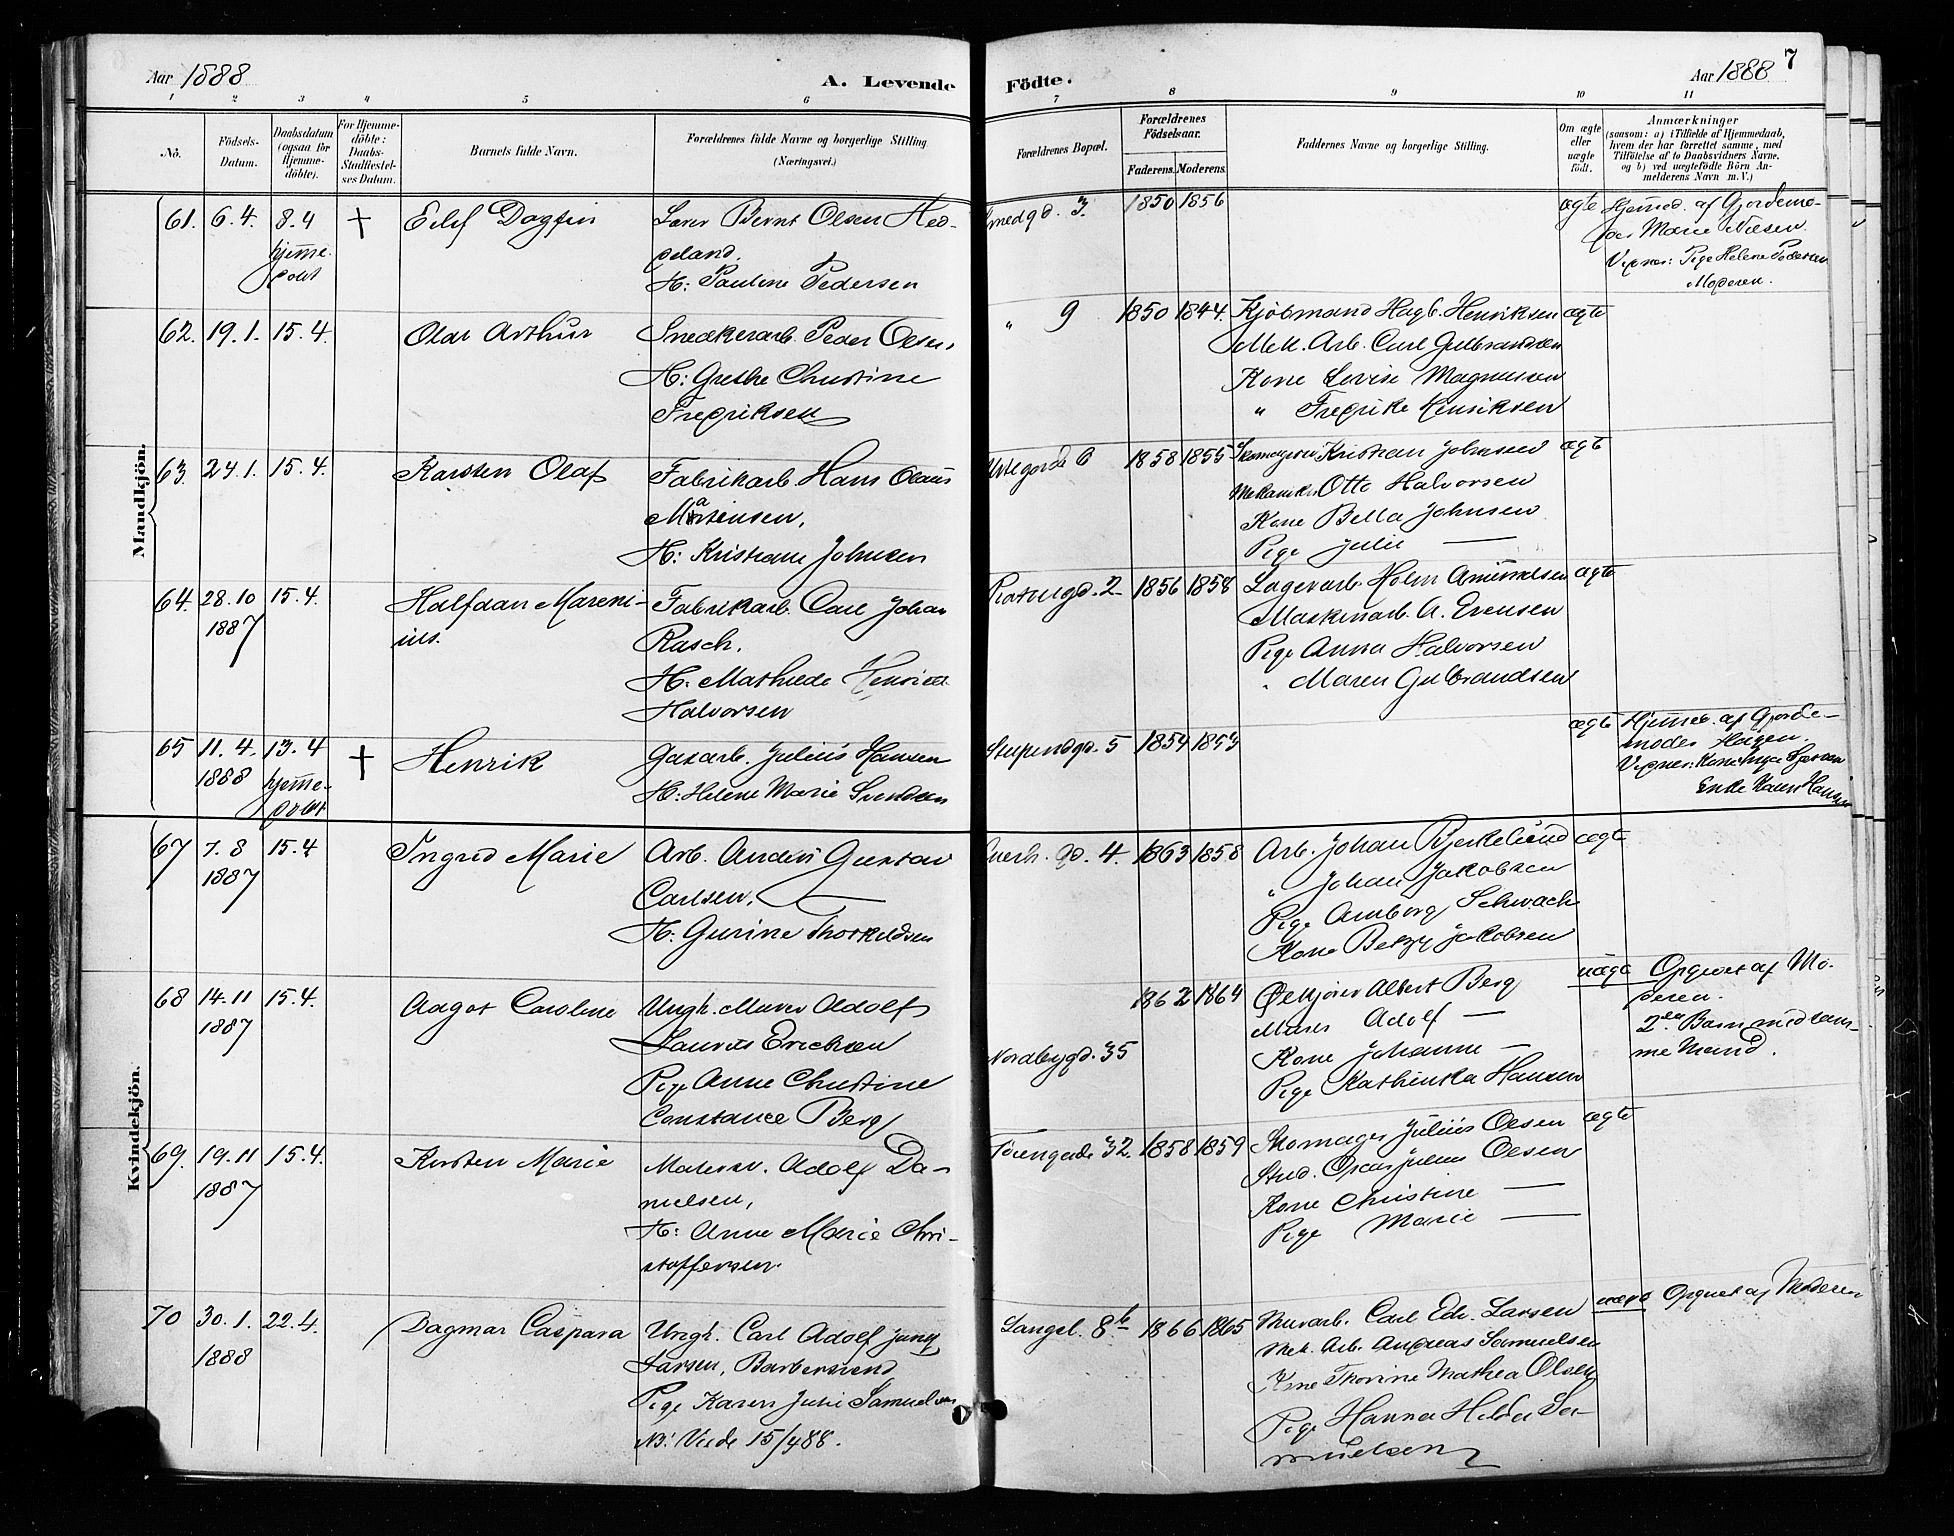 Aar 1888
A. Levende
Födte.
Aar 1888
7
1 2 3 4 5 6 7 8 9 10 11
No.
Födsels-
Datum.
Daabsdatum
(ogsaa for
Hjemme-
döbte).
For Hjemme-
döbte:
Daabs-
Stadfæstel-
ses Datum.
Barnets fulde Navn.
Forældrenes fulde Navne og borgerlige Stilling
(Næringsvei.)
Forældrenes Bopæl.
Forældrenes
Födselsaar.
Faderens. Moderens.
Faddernes Navne og borgerlige Stilling.
Om ægte
eller
uægte
födt.
Anmærkninger
(saasom: a) i Tilfælde af Hjemmedaab,
hvem der har forrettet samme, med
Tilföielse af to Daabsvidners Navne,
og b) ved uægtefödte Börn An-
melderens Navn m. V.)
Mandkjön.
61. 6.4. 8.4 †
hjemme-
döbt
Eilif Dagfin
Bernt Olsen Hed-
deland.
H: Pauline Pedersen
Smedgd. 3. 1850 1856
ægte
Hjemmed. af Gjordemo-
der Marie Nilsen.
Vidner: Pige Helene Pedersen
Moderen.
62. 19.1. 15.4.
Olar Arthur
Snedkerarb. Peder Olsen,
H: Grethe Christine
Fredriksen
" 9 1850 1844.
Kjöbmand Hagb. Henriksen
Mek. Arb. Carl Gulbrandsen
Kone Lovise Magnussen
" Fredrike Henriksen
ægte
63. 24.1. 15.4.
Karsten Olaf
Fabrikarb. Hans Olaus
Martensen,
H: Kristiane Johnsen
Urtegade 6 1858 1855
Skomager Kristian Johnsen
Mekaniker Otto Halvorsen
Kone Bella Johnsen
Pige Julie —
ægte
64. 28.10 15.4.
1887
Halfdan Mareni-
ius.
Fabrikarb. Carl Johan
Rasch,
H. Mathilde
Halvorsen
2 1856 1858
Lagerarb. Holm Amundsen
Maskinarb. A. Evensen
Pige Anna Halvorsen
" Maren Gulbrandsen
ægte
65 11.4. 13.4 †
1888 hjemme-
döbt
Henrik
Gasarb. Julius Hansen
H: Helene Marie Svendsen
Stupendgd. 5 1854 1853
ægte
Hjemmed. af Gjorde-
moder Hagen.
Vidner: Kone
Enke Karen Hansen
Kvindekjön.
67 7.8 15.4
1887
Ingrid Marie
Arb. Anders Gustav
Carlsen,
H: Gurine Thorkildsen
gd. 4. 1863 1858
Arb. Johan Bjerkelund
" Johan Jakobsen
Pige Amborg Schwach
Kone Betzy Jakobsen
ægte
68 14.11 15.4.
1887
Aagot Caroline
Ungk. Murer Adolf
Laurits Erichsen
Pige Anne Christine
Constance Berg
Nordbygd. 35
1862 1864
Ölkjörer Albert Berg
Murer Adolf —
Kone Johanne —
Pige Kathinka Hansen
uægte
Opgivet af Mo-
deren.
2det Barn med sam-
me Mand.
69. 19.11 15.4.
1887
Kirsten Marie
Matersv. Adolf Da-
nielsen,
H: Anne Marie Chri-
stoffersen.
32. 1858 1859
Skomager Julius Olsen
Stud. Oscar Julius Olsen
Kone Christine —
Pige Marie —
ægte
70 30.1. 22.4.
1888
Dagmar Caspara
Ungk. Carl Adolf
Larsen, Barbersvend
Pige Karen Julie Samuelsen
NB: Viede 15/4 88.
Langel. 8b 1866 1865
Murarb. Carl Edv. Larsen
Mek. Arb. Andreas Samuelsen
Kone Thorine Mathea Olsen
Pige Hanna Hilda Sa-
muelsen
uægte
Opgivet af Moderen